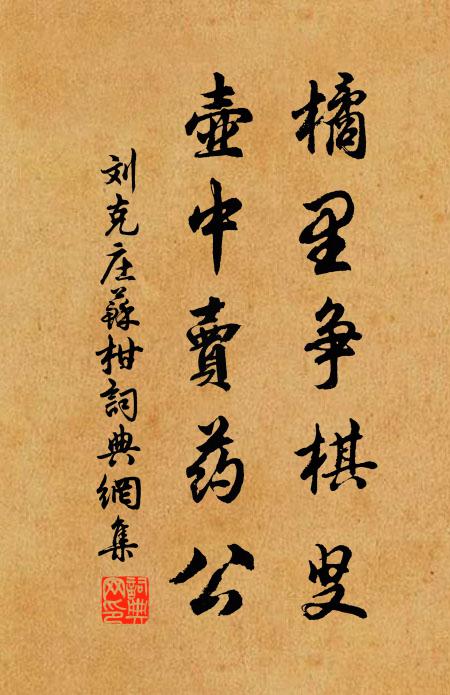 橘里争棋叟
壺中賣药公
刘克庄蘇柑詞典網集
詞典
网印